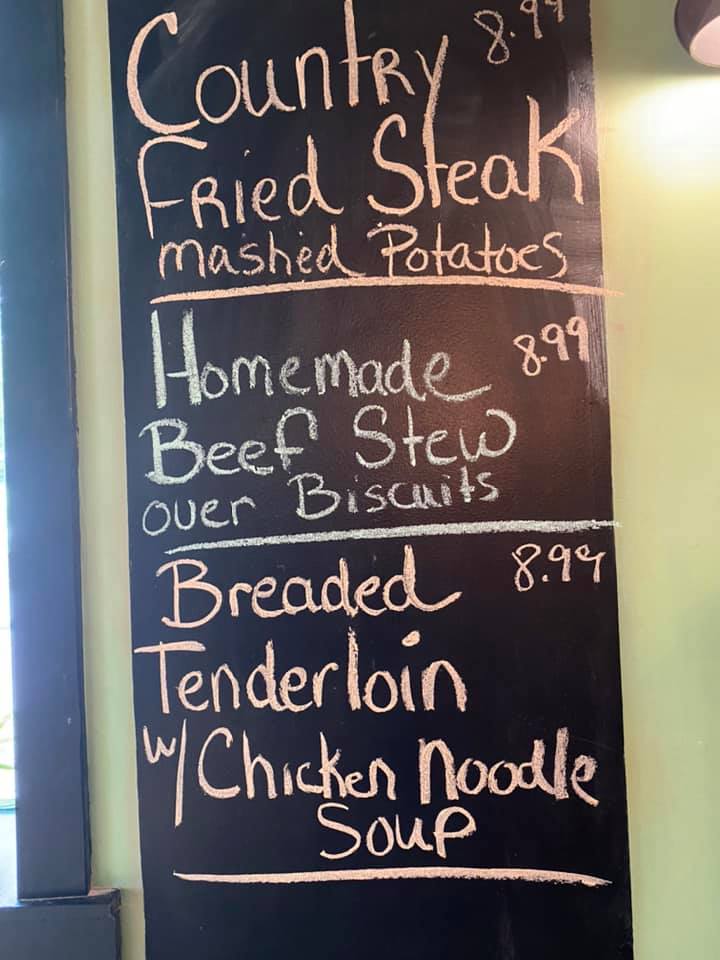 Country 8.99
Fried Steak
mashed Potatoes
Homemade 8.99
Beef Stew
over Biscuits
Breaded 8.99
Tenderloin
w/ Chicken Noodle
Soup